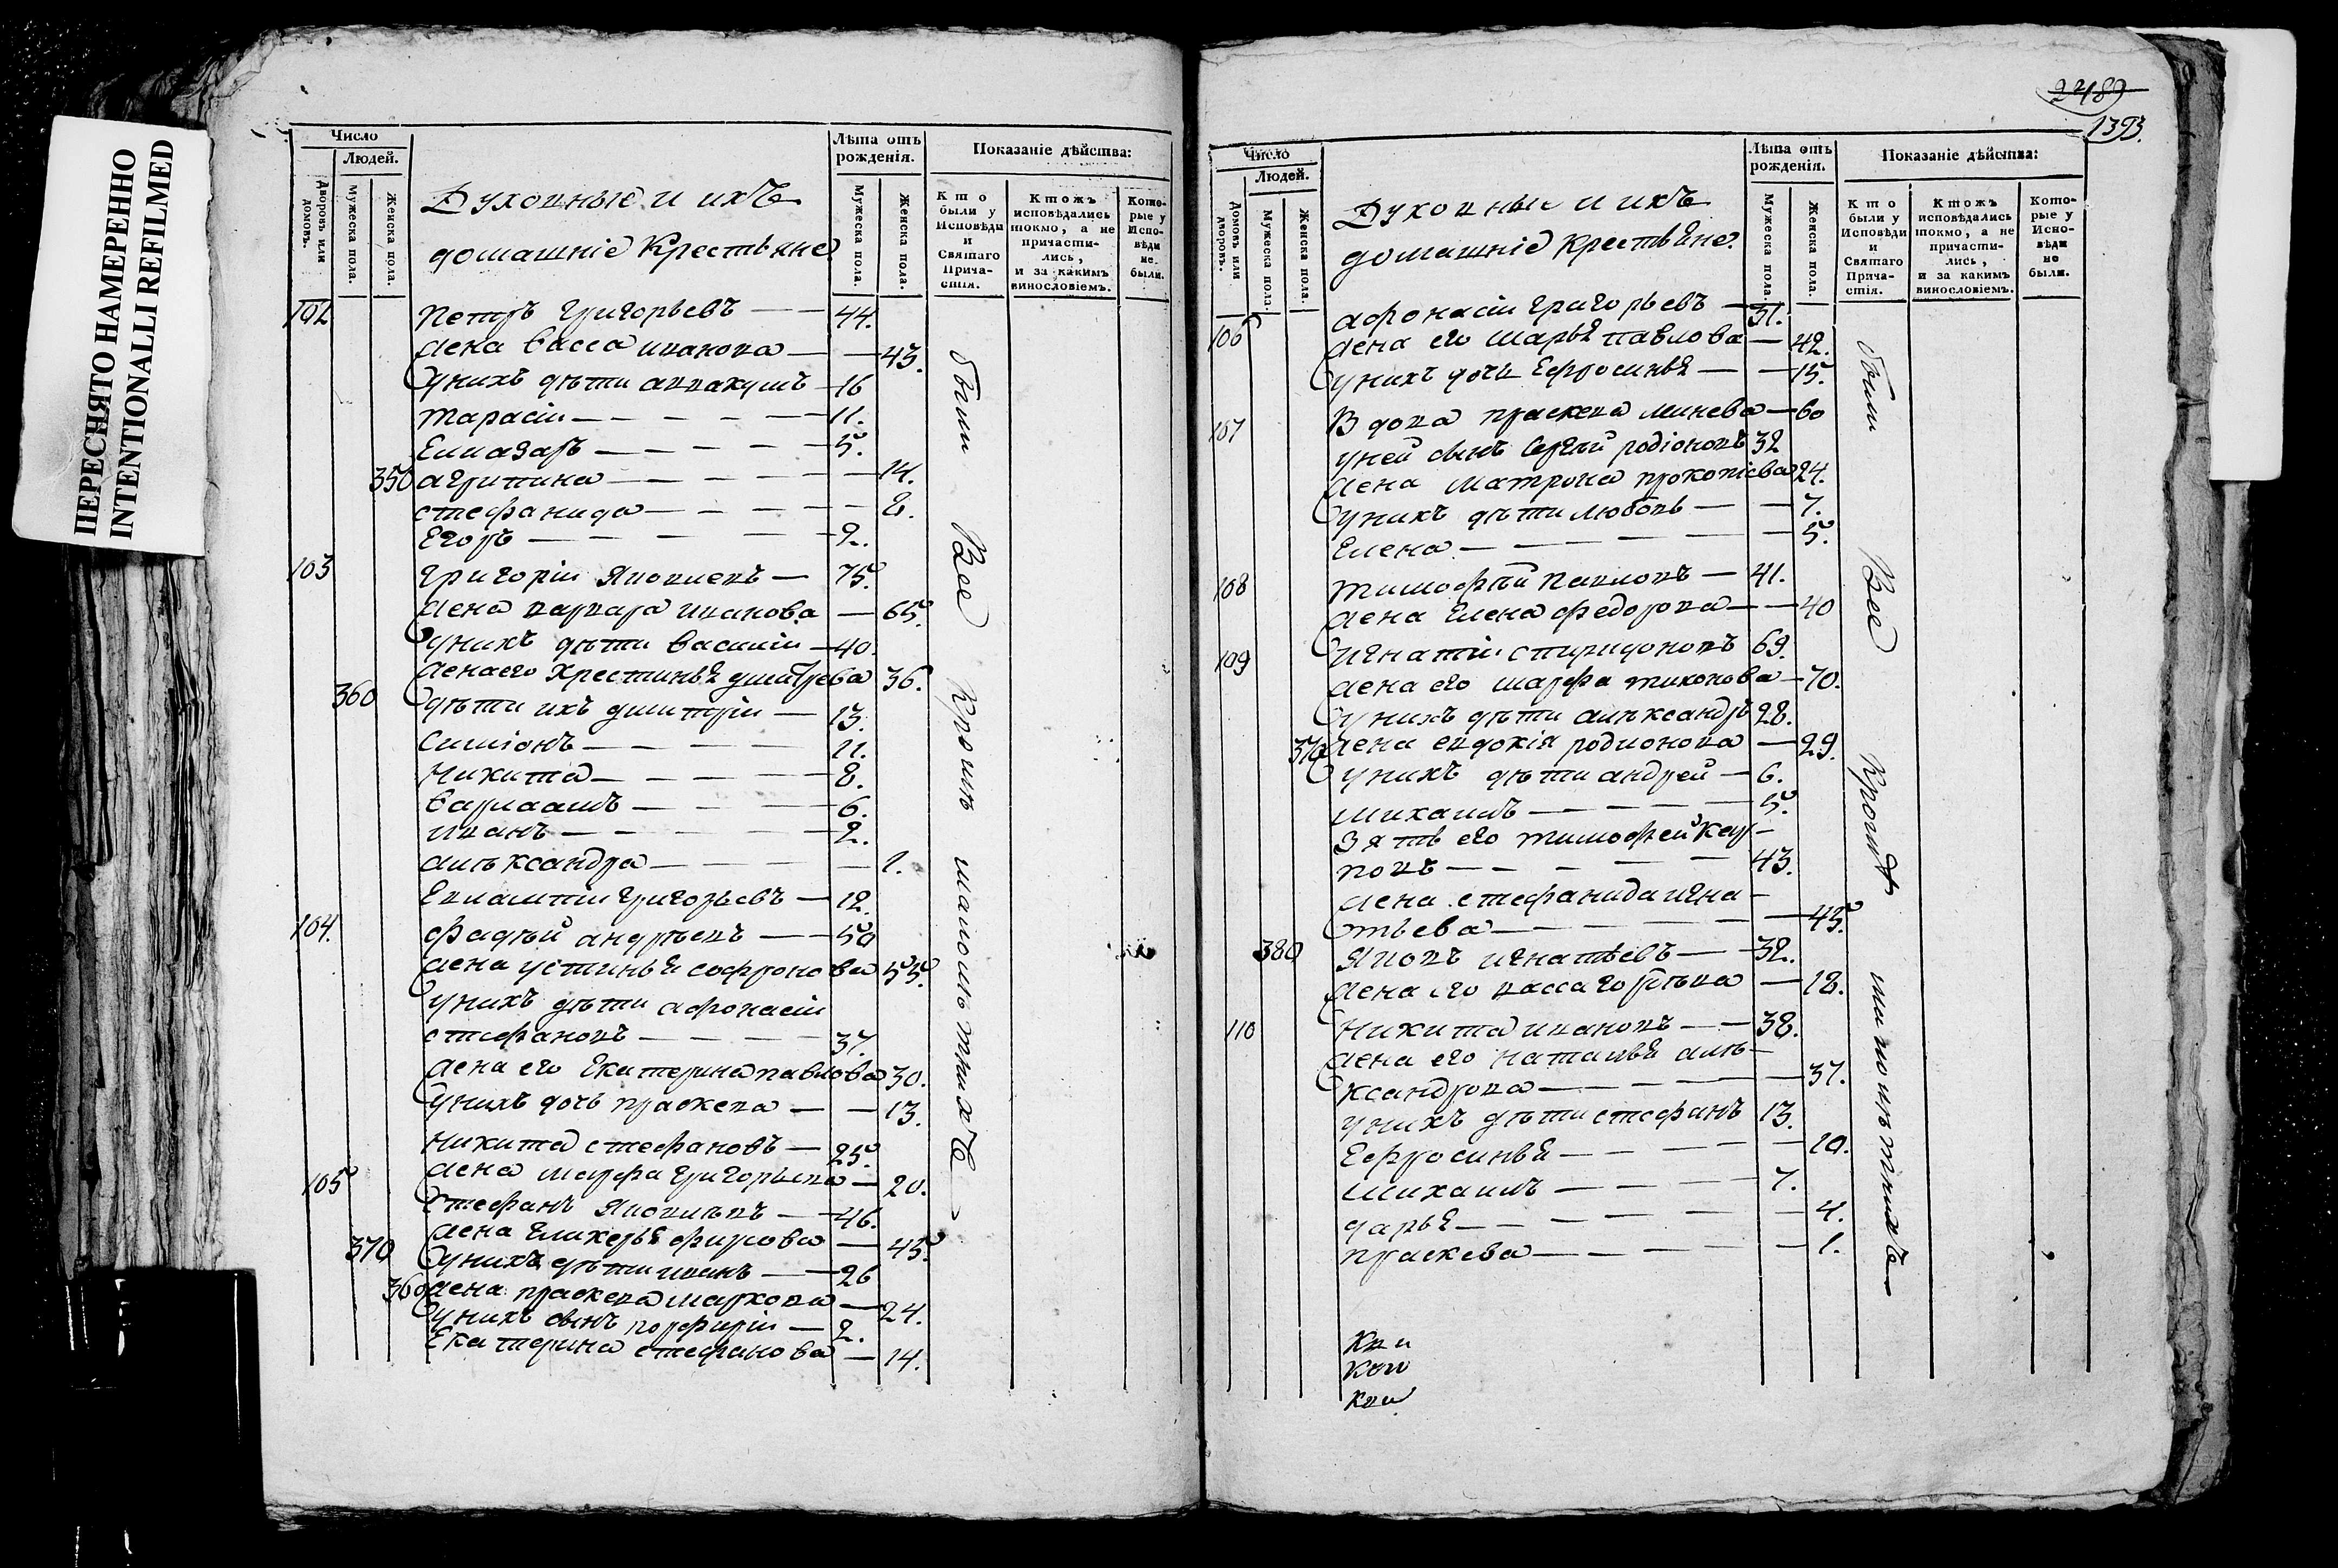 ПЕРЕСНЯТО НАМЕРЕННО
INTENTIONALLI REFILMED
Число
Людей.
Дворовъ или домовъ.
Мужеска пола.
Женска пола.
Духовные и ихъ
домашніе Крестьяне
Лѣта отъ рожденія.
Мужеска пола.
Женска пола.
Показаніе дѣйства:
Кто были у Исповѣди и Святаго Прича-стія.
Ктожъ исповѣдались токмо, а не причасти-лись, и за какимъ винословіемъ.
Кото-рые у Испо-вѣди не были.
102 Петръ Григорьевъ — — 44.
Жена Васса иванова — — 43.
Уникъ дѣти аввакумъ — 16
тарасіи — — — — 11.
Елиазаръ — — — — 5.
350 агрипина — — — — 14.
стефанида — — — — 8.
Егоръ — — — — 2.
103 Григоріи Яковлевъ — 75.
Жена варвара иванова — 65.
Унихъ дѣти василіи — 40.
Жена его Хрестинья дмитрева 36.
360 дѣти ихъ дмитріи — 13.
Симіонъ — — — — 11.
Никита — — — — 8.
варлаамъ — — — — 6.
иванъ — — — — 2.
алѣксандра — — — — 1.
Евлампіи григорьевъ — 12.
104. Фадѣй андрѣевъ — — 50
Жена устинья софронова 55.
Унихъ дѣти афонасіи
стефановъ — — — — 37.
Жена его Екатерина павлова 30.
Унихъ дочь праскева — — 13.
Никита стефановъ — 25.
Жена марфа григорьева — 20.
105 Стефанъ Яковлевъ — — 46.
Жена гликерья фирсова — 45.
370 Унихъ дѣти иванъ — — 26
360 Жена праскева маркова — 24.
Унихъ сынъ порфиріи — 2.
Екатерина стефанова — 14.
были Все Кромѣ малолѣтнихъ
2489
1393.
Число
Людей.
Домовъ или дворовъ.
Мужеска пола
Женска пола.
Духовные и ихъ
домашніе крестьяне.
Лѣта отъ рожденія.
Мужеска пола.
Женска пола.
Показаніе дѣйства:
Кто были у Исповѣди и Святаго Прича-стія.
Ктожъ исповѣдались токмо, а не причасти-лись, и за какимъ винословіемъ.
Кото-рые у Испо-вѣди не были.
106 афонасіи григорьевъ — 31.
Жена его марья павлова — 42.
Унихъ дочь Ефросинья — — 15.
107 Вдова праскева минева — 60
уней сынъ Сергѣй родіоновъ 32
Жена матрона прокопіева 24.
Унихъ дѣти любовь — — 7.
Елена — — — — 5.
108 тимофѣй павловъ — 41.
Жена Елена федорова — — 40
109 Игнатіи спиридоновъ 69.
Жена его марфа тихонова — 70.
Унихъ дѣти алѣксандръ 28.
370 Жена евдокія родионова — 29.
Унихъ дѣти андрей — 6.
михаилъ — — — — 5.
Зять его тимофей кар-
повъ — — — — 43.
Жена стефанида игна-
тьева — — — — 45.
380 Яковъ игнатьевъ — — 32.
Жена его васса горѣева — 18.
110 Никита ивановъ — — 38.
Жена его наталья алѣ-
ксандрова — — — — 37.
унихъ дѣти стефанъ 13.
Ефросинья — — — — 10.
михаилъ — — — — 7.
дарья — — — — 4.
праскева — — — — 1.
были Все Кромѣ малолѣтнихъ